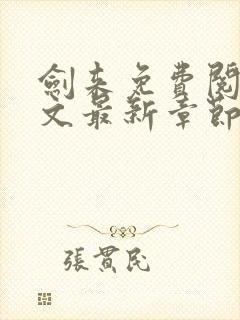 劍来免費閱
文最新章節
張貫民